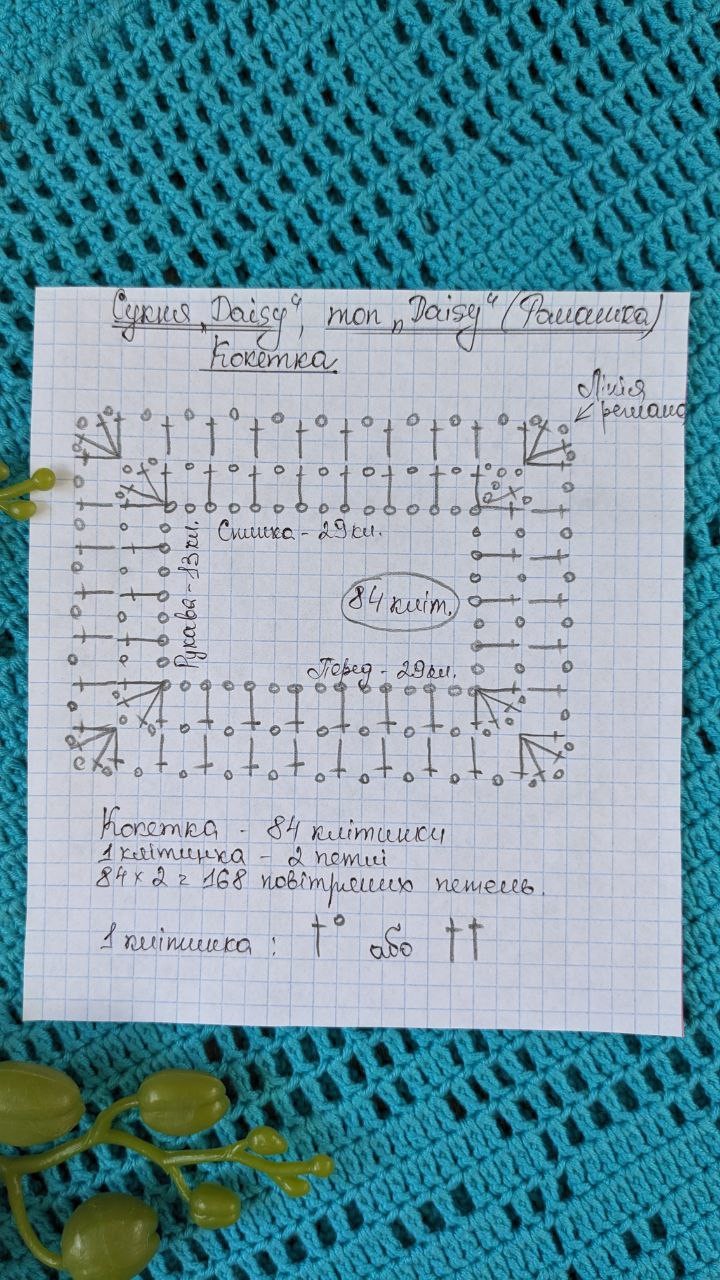 Сукня „Daisy“, топ „Daisy“ (Ромашка)
Кокетка
Лінія
реглана
Спинка - 29 кл.
Рукава - 13 кл.
84 кліт.
Перед - 29 кл.
Кокетка - 84 клітинки
1 клітинка - 2 петлі
84 × 2 = 168 повітряних петель.
1 клітинка : або